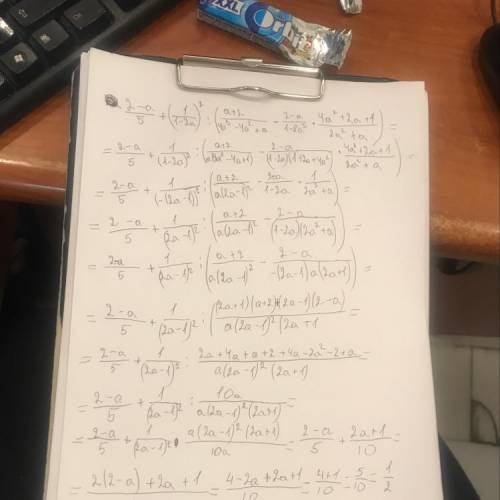 XXL Orbit
(2-a)/5 + (1/(1-2a))² : ((a+2)/(4a³-4a²+a) - (2-a)/(1-8a³) · (4a²+2a+1)/(2a²+a)) =
= (2-a)/5 + 1/(1-2a)² : ((a+2)/(a(4a²-4a+1)) - (2-a)/((1-2a)(1+2a+4a²)) · (4a²+2a+1)/(2a²+a)) =
= (2-a)/5 + 1/(-(2a-1))² : ((a+2)/(a(2a-1)²) - (2-a)/(1-2a) · 1/(2a²+a)) =
= (2-a)/5 + 1/(2a-1)² : ((a+2)/(a(2a-1)²) - (2-a)/((1-2a)(2a²+a))) =
= (2-a)/5 + 1/(2a-1)² : ((a+2)/(a(2a-1)²) - (2-a)/(-(2a-1)a(2a+1))) =
= (2-a)/5 + 1/(2a-1)² : ((2a+1)(a+2)+(2a-1)(2-a))/(a(2a-1)²(2a+1) =
= (2-a)/5 + 1/(2a-1)² : (2a+4a+a+2+4a-2a²-2+a)/(a(2a-1)²(2a+1)) =
= (2-a)/5 + 1/(2a-1)² : 10a/(a(2a-1)²(2a+1)) =
= (2-a)/5 + 1/(2a-1)² · a(2a-1)²(2a+1)/10a = (2-a)/5 + (2a+1)/10 =
= (2(2-a)+2a+1)/ = (4-2a+2a+1)/10 = (4+1)/10 = 5/10 = 1/2